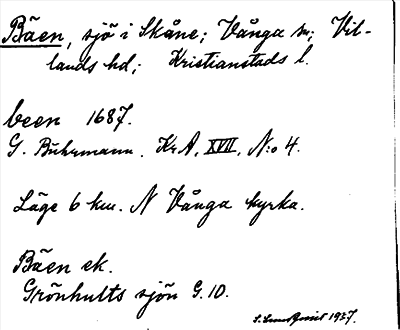 Bäen, sjö i Skåne; Vånga sn; Vil-
lands hd; Kristianstads l.
been 1687.
G. Buhrmann. Kr A, XVII, N:o 4.
Läge 6 km. N Vånga kyrka.
Bäen ek.
Grönhults sjön G. 10.
1927.